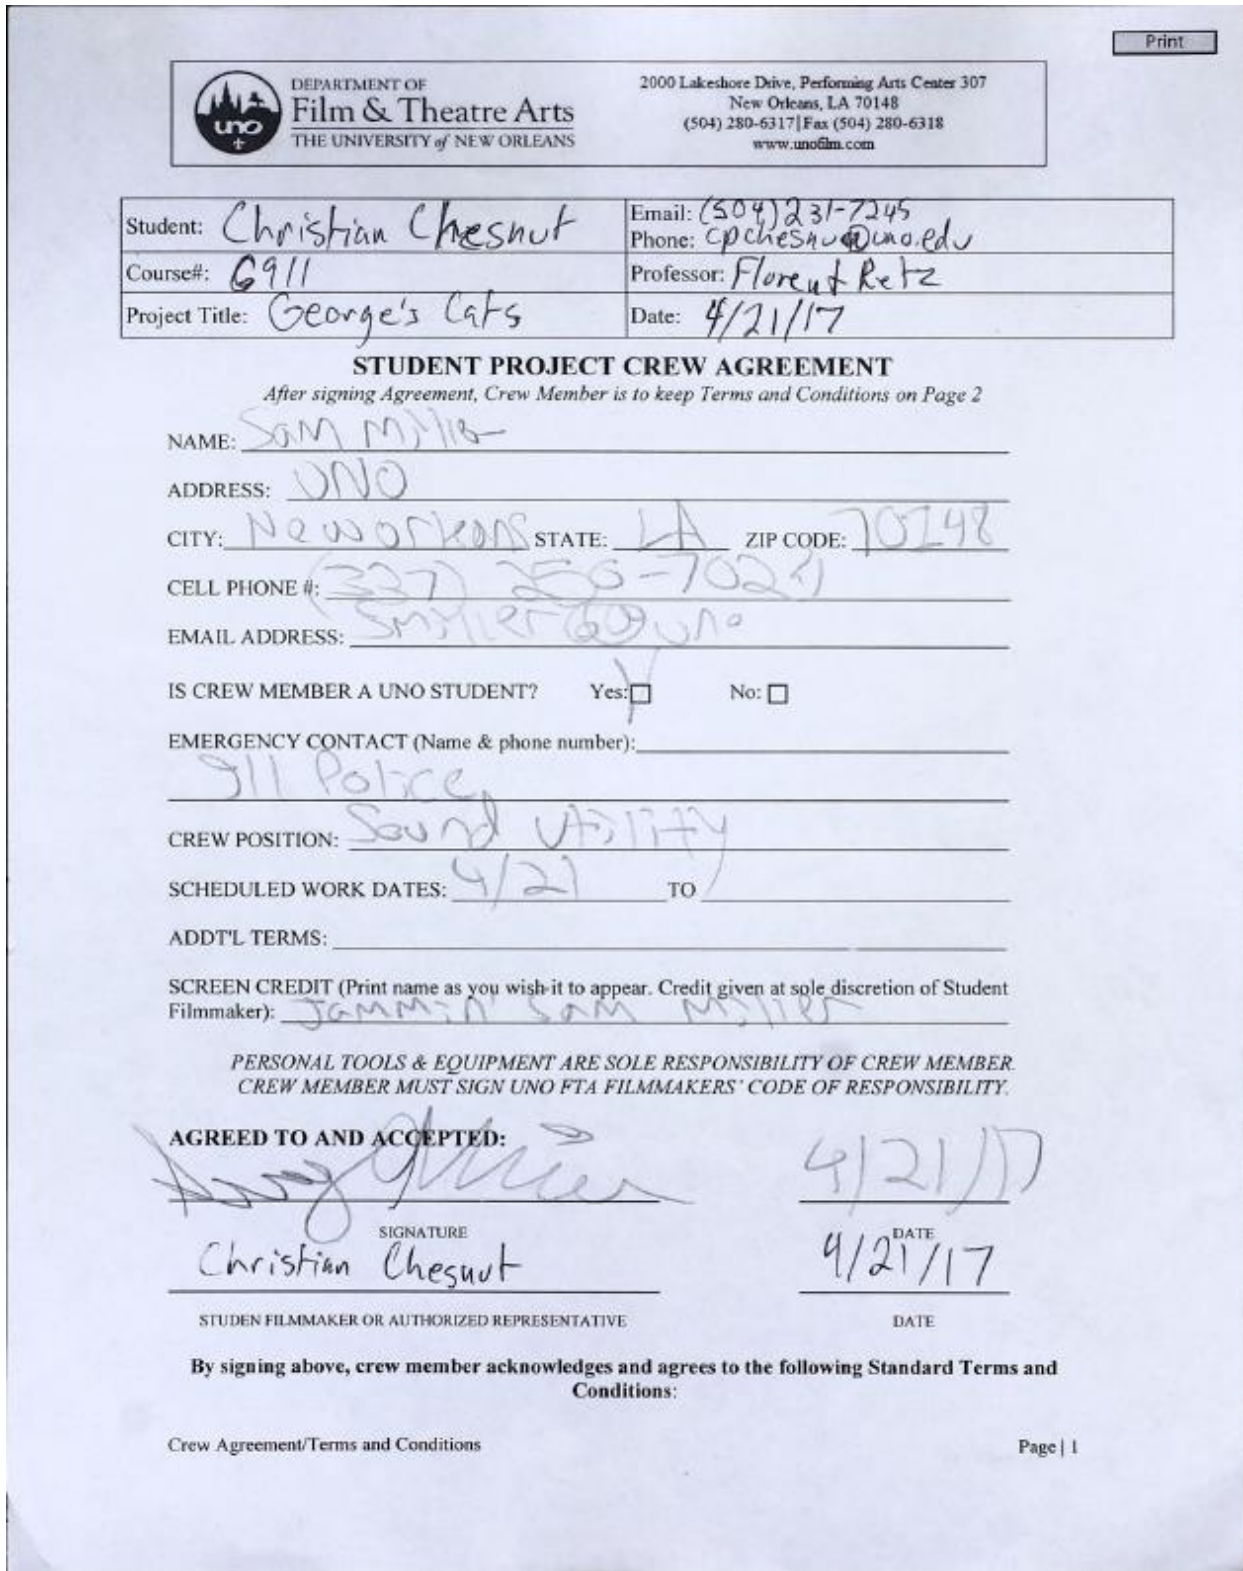 Print
DEPARTMENT OF
Film & Theatre Arts
THE UNIVERSITY of NEW ORLEANS
uno
2000 Lakeshore Drive, Performing Arts Center 307
New Orleans, LA 70148
(504) 280-6317|Fax (504) 280-6318
www.unofilm.com
Student: Christian Chesnut
Email: (504) 231-7245
Phone: cpchesnu@uno.edu
Course#: 6911
Professor: Florent Retz
Project Title: George's Cats
Date: 4/21/17
STUDENT PROJECT CREW AGREEMENT
After signing Agreement, Crew Member is to keep Terms and Conditions on Page 2
NAME: Sam Miller
ADDRESS: UNO
CITY: New Orleans STATE: LA ZIP CODE: 70148
CELL PHONE #: (337)
EMAIL ADDRESS: smiller6@uno
IS CREW MEMBER A UNO STUDENT? Yes: No:
EMERGENCY CONTACT (Name & phone number):
911 Police
CREW POSITION: Sound Utility
SCHEDULED WORK DATES: 4/21 TO
ADDT'L TERMS:
SCREEN CREDIT (Print name as you wish it to appear. Credit given at sole discretion of Student
Filmmaker): Jammin' Sam Miller
PERSONAL TOOLS & EQUIPMENT ARE SOLE RESPONSIBILITY OF CREW MEMBER.
CREW MEMBER MUST SIGN UNO FTA FILMMAKERS' CODE OF RESPONSIBILITY.
AGREED TO AND ACCEPTED:
4/21/17
SIGNATURE DATE
Christian Chesnut 4/21/17
STUDEN FILMMAKER OR AUTHORIZED REPRESENTATIVE DATE
By signing above, crew member acknowledges and agrees to the following Standard Terms and
Conditions:
Crew Agreement/Terms and Conditions Page | 1